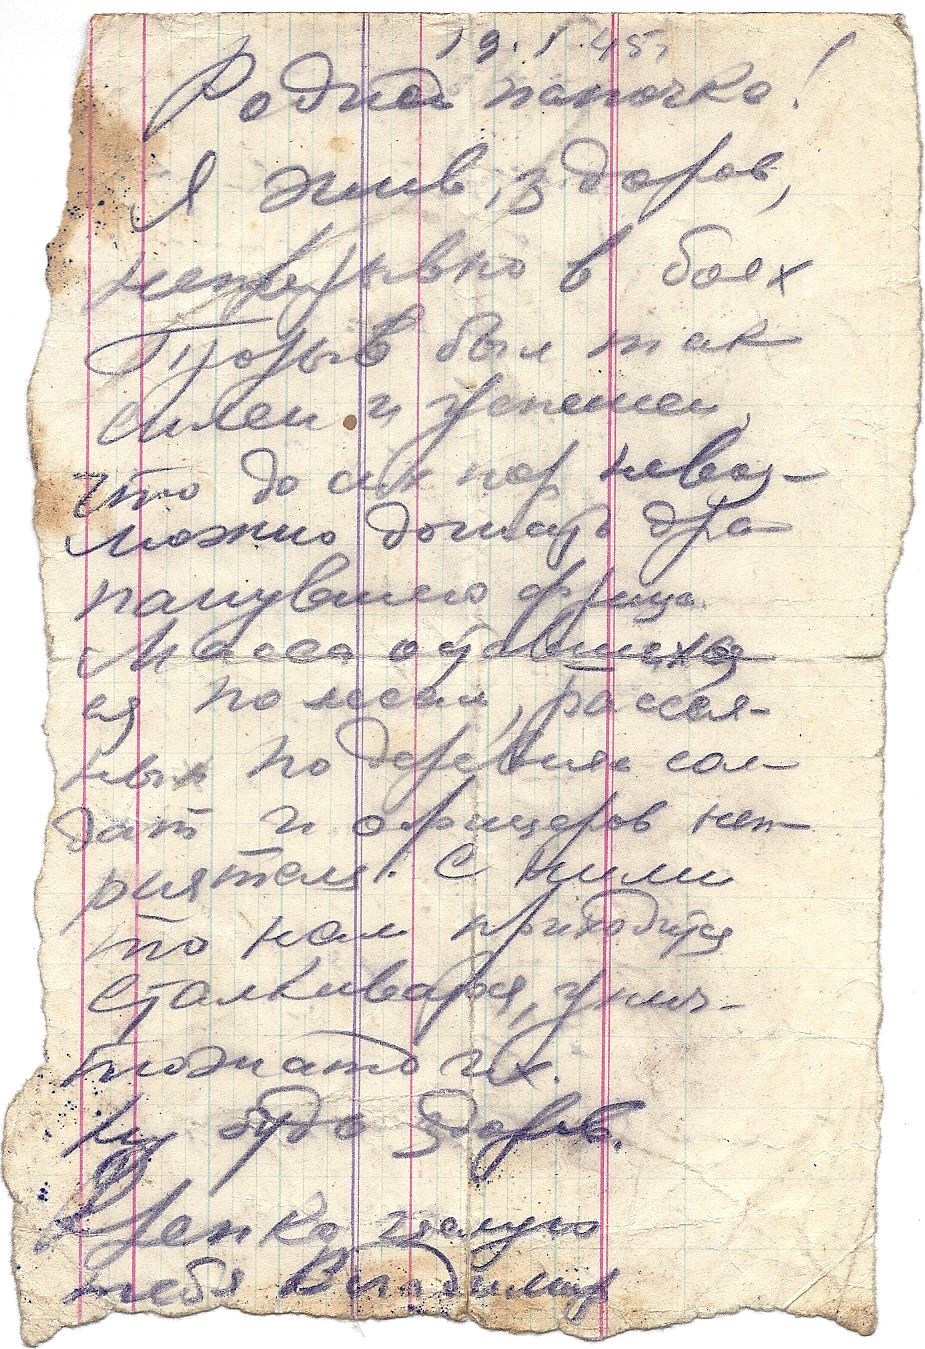 19.I.45.
Родной папочка!
Я жив, здоров,
непрерывно в боях
Прорыв был так
силен и успешен,
что до сих пор невоз-
можно догнать дра-
панувшего фрица.
Масса оставшихся
по лесам, рассея-
ных по деревням сол-
дат и офицеров неп-
риятеля. С ними
то нам приходится
сталкиваться, унич-
тожать их.
Ну будь здоров.
Крепко целую
тебя Владимир